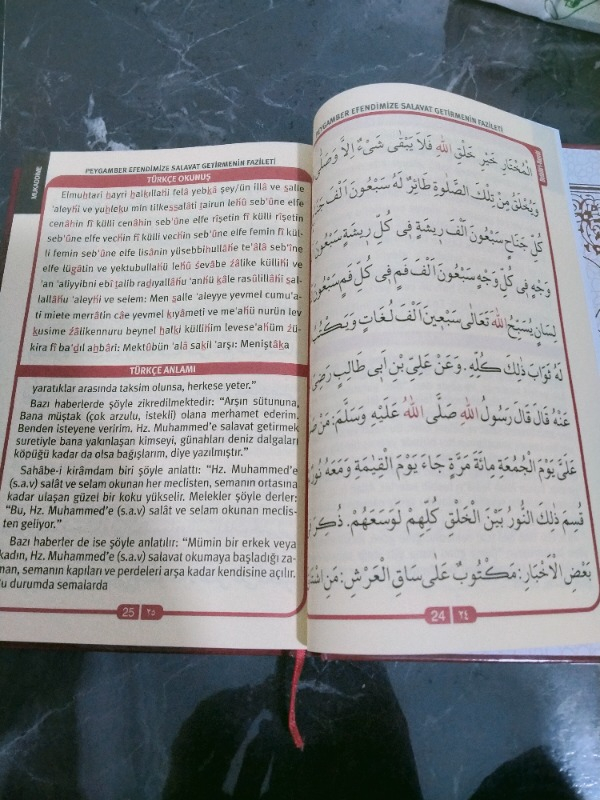 MUKADDİME
PEYGAMBER EFENDİMİZE SALAVAT GETİRMENİN FAZİLETİ
TÜRKÇE OKUNUŞ
Elmuhtari hayri halkıllahi felâ yebkâ şey'ün illâ ve salle
'aleyhi ve yahleku min tilkessalâti tairun lehû seb'ûne elfe
cenâhin fî külli cenâhin seb'ûne elfe rîşetin fî külli rîşetin
seb'ûne elfe vechin fî külli vechin seb'ûne elfe femin fî kül-
li femin seb'ûne elfe lisânin yüsebbihullâhe te'âlâ seb'îne
elfe lügâtin ve yektubullahü lehû sevâbe zâlike küllihi ve
'an 'aliyyibni ebî talib radıyallâhu 'anhü kâle rasûlillâhi sal-
lallâhu 'aleyhi ve selem: Men salle 'aleyye yevmel cumu'a-
ti miete merrâtin câe yevmel kıyâmeti ve me'ahü nurün lev
kusime zâlikennuru beynel halki küllihim levese'ahüm zü-
kira fî ba'dıl ahbâri: Mektûbün 'alâ sakıl 'arşı: Meniştâka
TÜRKÇE ANLAMI
yaratıklar arasında taksim olunsa, herkese yeter."
Bazı haberlerde şöyle zikredilmektedir: "Arşın sütununa,
Bana müştak (çok arzulu, istekli) olana merhamet ederim.
Benden isteyene veririm. Hz. Muhammed'e salavat getirmek
suretiyle bana yakınlaşan kimseyi, günahları deniz dalgaları
köpüğü kadar da olsa bağışlarım, diye yazılmıştır."
Sahâbe-i kirâmdam biri şöyle anlattı: "Hz. Muhammed'e
(s.a.v) salât ve selam okunan her meclisten, semanın ortasına
kadar ulaşan güzel bir koku yükselir. Melekler şöyle derler:
"Bu, Hz. Muhammed'e (s.a.v) salât ve selam okunan meclis-
ten geliyor."
Bazı haberler de ise şöyle anlatılır: "Mümin bir erkek veya
kadın, Hz. Muhammed'e (s.a.v) salavat okumaya başladığı za-
man, semanın kapıları ve perdeleri arşa kadar kendisine açılır.
Bu durumda semalarda
25 ٢٥
PEYGAMBER EFENDİMİZE SALAVAT GETİRMENİN FAZİLETİ
الْمُخْتَارِ خَيْرِ خَلْقِ اللهِ فَلَا يَبْقَى شَيْءٌ إِلَّا وَصَلَّى
وَيَخْلُقُ مِنْ تِلْكَ الصَّلٰوةِ طَائِرٌ لَهُ سَبْعُونَ أَلْفَ
كُلِّ جَنَاحٍ سَبْعُونَ أَلْفَ رِيشَةٍ فِي كُلِّ رِيشَةٍ سَبْعُونَ
وَجْهٍ فِي كُلِّ وَجْهٍ سَبْعُونَ أَلْفَ فَمٍ فِي كُلِّ فَمٍ سَبْعُونَ
لِسَانٍ يُسَبِّحُ اللهَ تَعَالَى سَبْعِينَ أَلْفَ لُغَاتٍ وَيَكْتُبُ
لَهُ ثَوَابَ ذٰلِكَ كُلِّهِ. وَعَنْ عَلِيِّ بْنِ أَبِي طَالِبٍ رَضِيَ
عَنْهُ قَالَ قَالَ رَسُولُ اللهِ صَلَّى اللهُ عَلَيْهِ وَسَلَّمَ: مَنْ
عَلَيَّ يَوْمَ الْجُمُعَةِ مِائَةَ مَرَّةٍ جَاءَ يَوْمَ الْقِيٰمَةِ وَمَعَهُ نُورٌ
قُسِمَ ذٰلِكَ النُّورُ بَيْنَ الْخَلْقِ كُلِّهِمْ لَوَسَعَهُمْ. ذُكِرَ
بَعْضِ الْأَخْبَارِ: مَكْتُوبٌ عَلَى سَاقِ الْعَرْشِ: مَنِ
24 ٢٤